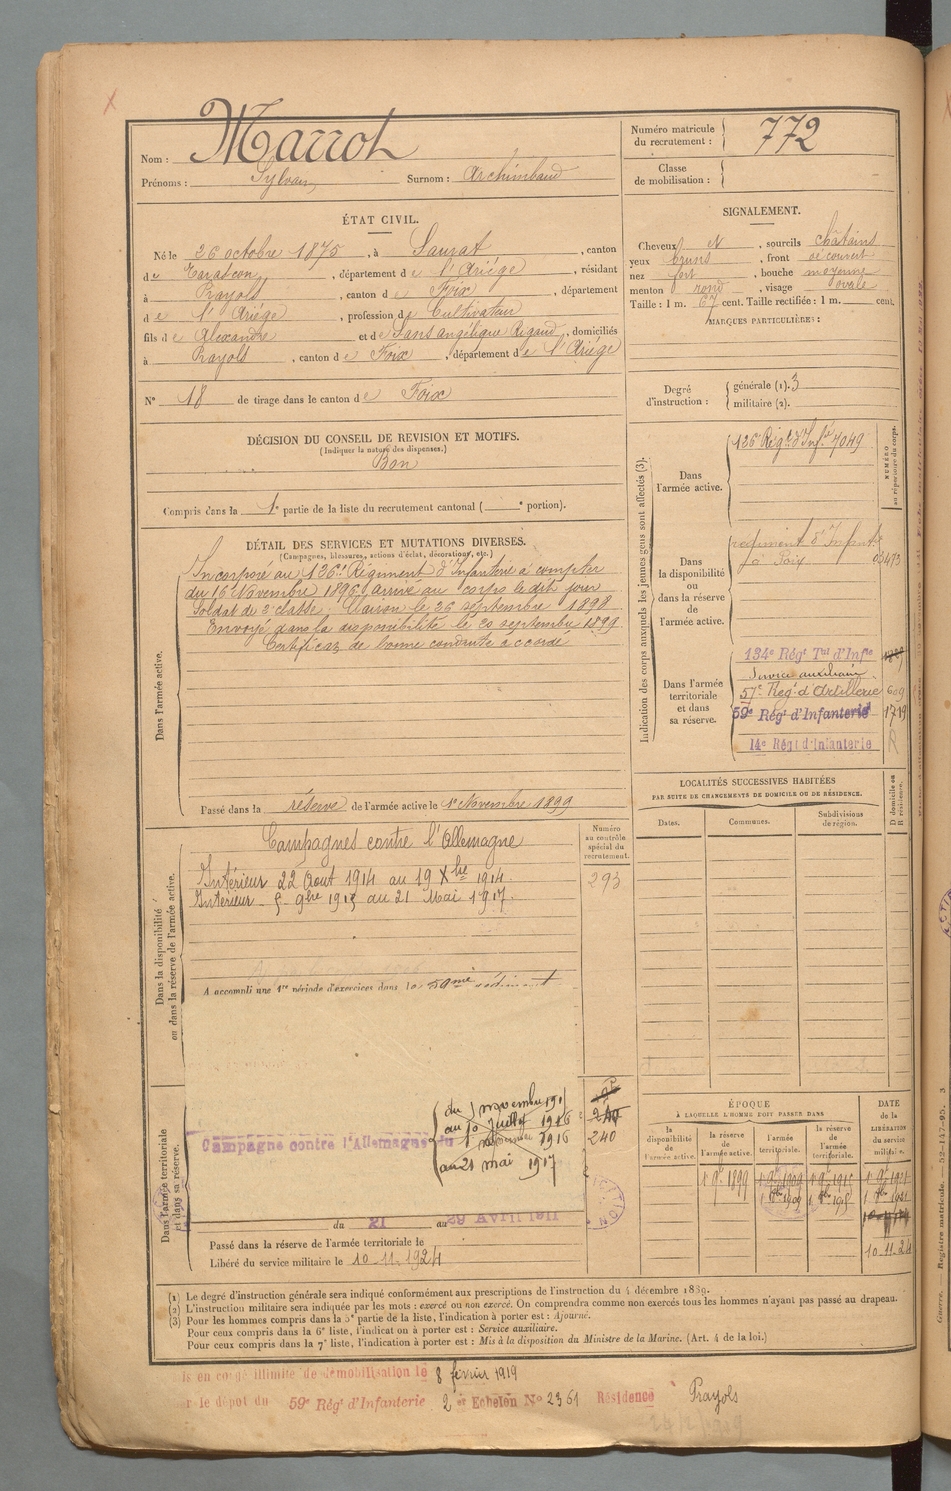 Nom : Marrot
Prénoms : Sylvain Surnom : Archimbaud
Numéro matricule du recrutement : 772
Classe de mobilisation :
ÉTAT CIVIL.
Né le 26 octobre 1875, à Saurat, canton
de Tarascon, département de l'Ariége, résidant
à Prayols, canton de Foix, département
de l'Ariége, profession de Cultivateur
fils de Alexandre et de Sans angélique Rigaud, domiciliés
à Prayols, canton de Foix, département de l'Ariége
N° 18 de tirage dans le canton de Foix
SIGNALEMENT.
Cheveux N, sourcils châtains
yeux bruns, front découvert
nez fort, bouche moyenne
menton rond, visage ovale
Taille : 1 m. 67 cent. Taille rectifiée : 1 m. cent.
MARQUES PARTICULIÈRES :
Degré d'instruction : générale (1). 3
militaire (2).
DÉCISION DU CONSEIL DE REVISION ET MOTIFS.
(Indiquer la nature des dispenses.)
Bon
Compris dans la 1e partie de la liste du recrutement cantonal ( e portion).
DÉTAIL DES SERVICES ET MUTATIONS DIVERSES.
(Campagnes, blessures, actions d'éclat, décorations, etc.)
Dans l'armée active.
Incorporé au 126e Régiment d'Infanterie à compter
du 16 Novembre 1896. arrivé au corps le dit jour
Soldat de 2e classe. Clairon le 26 septembre 1898
Envoyé dans la disponibilité le 20 septembre 1899
Certificat de bonne conduite accordé
Passé dans la réserve de l'armée active le 1er Novembre 1899
Indication des corps auxquels les jeunes gens sont affectés (3).
NUMÉRO au répertoire du corps.
Dans l'armée active.
126e Régt d'Infie 7049
Dans la disponibilité ou dans la réserve de l'armée active.
régiment d'Infant
Foix
Dans l'armée territoriale et dans sa réserve.
134e Régt Tal d'Infie
Service auxiliaire
57e Rég. d'Artillerie
59e Régt d'Infanterie 1719
14e Régt d'Infanterie R
LOCALITÉS SUCCESSIVES HABITÉES
PAR SUITE DE CHANGEMENTS DE DOMICILE OU DE RÉSIDENCE.
Dates. Communes. Subdivisions de région. D domicile ou R résidence.
Dans la disponibilité ou dans la réserve de l'armée active.
Numéro au contrôle spécial du recrutement.
293
Campagnes contre l'Allemagne
Intérieur 22 Aout 1914 au 19 Xbre 1914.
Intérieur 5 9bre 1915 au 21 Mai 1917.
A accompli une 1re période d'exercices dans le 59ème régiment
Dans l'armée territoriale et dans sa réserve.
Campagne contre l'Allemagne du
au 21 mai 1917
240
240
du 21 au 29 Avril 1911
Passé dans la réserve de l'armée territoriale le
Libéré du service militaire le 10-11-1924
ÉPOQUE
À LAQUELLE L'HOMME DOIT PASSER DANS
la disponibilité de l'armée active. la réserve de l'armée active. l'armée territoriale. la réserve de l'armée territoriale.
DATE de la LIBÉRATION du service militaire.
1 9e 1899
10-11-24
(1) Le degré d'instruction générale sera indiqué conformément aux prescriptions de l'instruction du 4 décembre 1889.
(2) L'instruction militaire sera indiquée par les mots : exercé ou non exercé. On comprendra comme non exercés tous les hommes n'ayant pas passé au drapeau.
(3) Pour les hommes compris dans la 5e partie de la liste, l'indication à porter est : Ajourné.
Pour ceux compris dans la 6e liste, l'indication à porter est : Service auxiliaire.
Pour ceux compris dans la 7e liste, l'indication à porter est : Mis à la disposition du Ministre de la Marine. (Art. 4 de la loi.)
is en congé illimité de démobilisation le 8 février 1919
r le dépôt du 59e Régt d'Infanterie 2e Echelon N° 2361 Résidence à Prayols
Registre matricule. — 52-147-95. 3